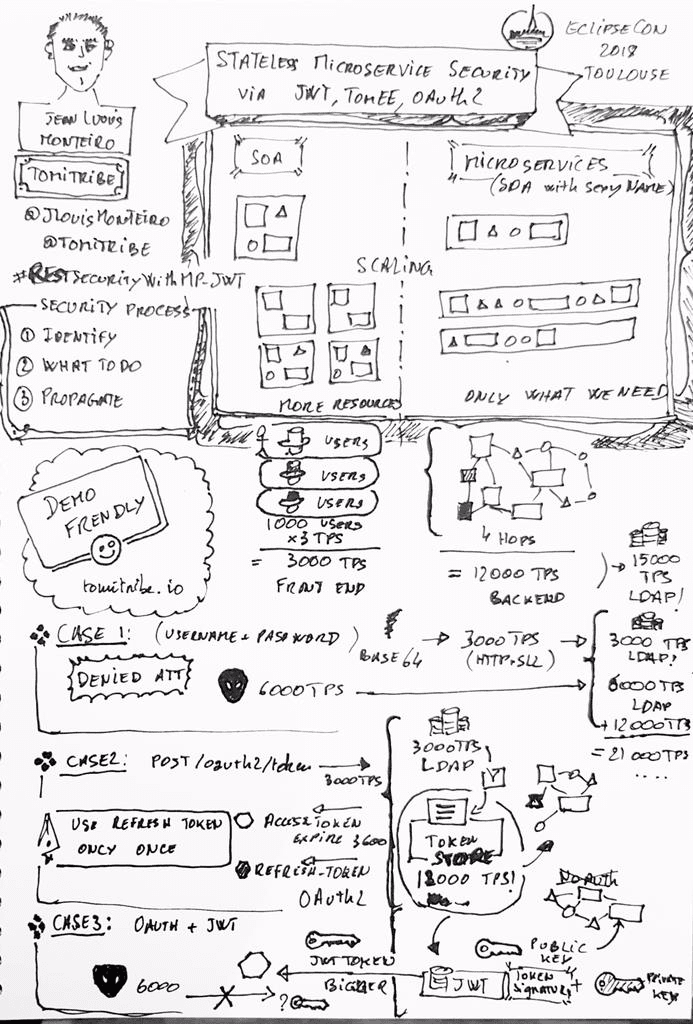 EclipseCon
2018
TOULOUSE
STATELESS MICROSERVICE SECURITY
VIA JWT, TOMEE, OAUTH2
JEAN LOUIS
MONTEIRO
TOMITRIBE
@JLOUISMONTEIRO
@TOMITRIBE
#RESTSECURITYWITHMP-JWT
SECURITY PROCESS
1 IDENTIFY
2 WHAT TO DO
3 PROPAGATE
SOA
MICROSERVICES
(SOA with sexy NAME)
SCALING
MORE RESOURCES
ONLY WHAT WE NEED
DEMO
FRENDLY
tomitribe.io
USERS
USERS
USERS
1000 USERS
×3 TPS
= 3000 TPS
FRONT END
4 HOPS
= 12000 TPS
BACKEND
15000
TPS
LDAP!
CASE 1: (USERNAME + PASSWORD)
BASE 64
3000 TPS
(HTTP+SLL)
3000 TPS
LDAP!
DENIED ATT
6000 TPS
6000 TPS
LDAP
+12000 TPS
= 21000 TPS
....
CASE2: POST/oauth2/token
3000 TPS
3000 TPS
LDAP
USE REFRESH TOKEN
ONLY ONCE
ACCESS TOKEN
EXPIRE 3600
REFRESH-TOKEN
OAuth2
TOKEN
STORE
12000 TPS!
NO AUTH
CASE3: OAUTH + JWT
6000
?
JWT TOKEN
BIGGER
PUBLIC
KEY
JWT
TOKEN
SIGNATURE +
PRIVATE
KEY